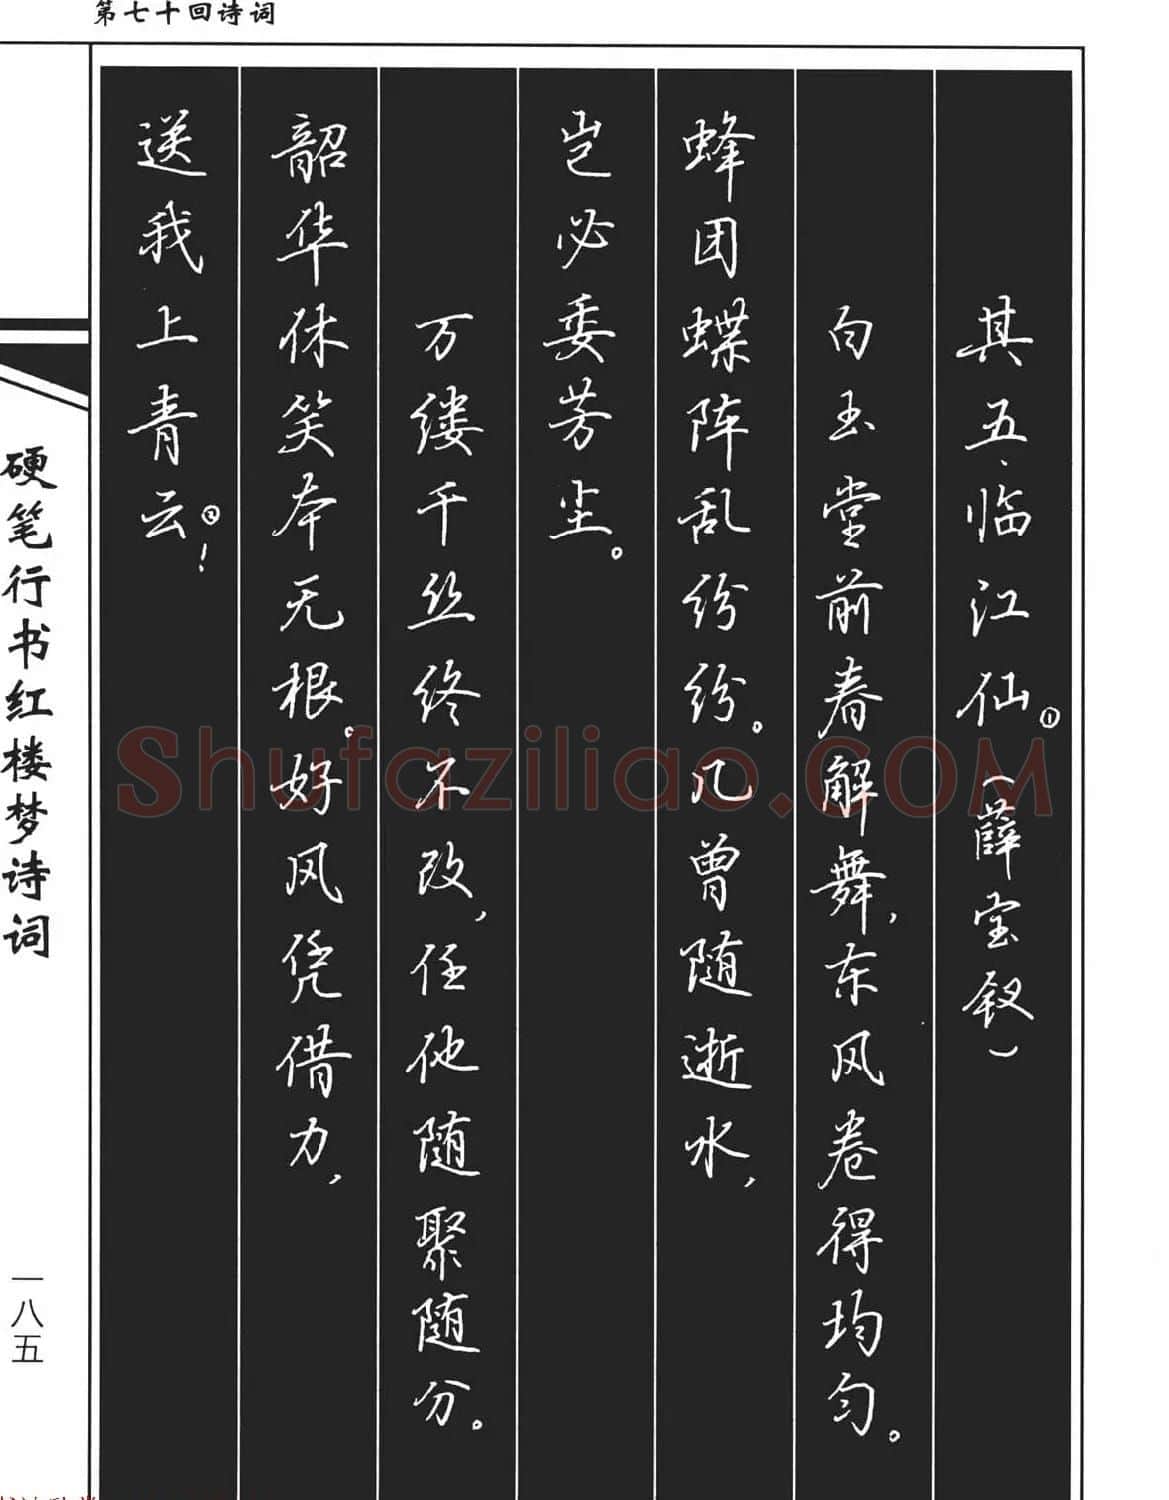 第七十回诗词
其五、临江仙。①（薛宝钗）
白玉堂前春解舞，东风卷得均匀。
蜂团蝶阵乱纷纷。几曾随逝水，
岂必委芳尘。
万缕千丝终不改，任他随聚随分。
韶华休笑本无根。好风凭借力，
送我上青云②！
硬笔行书红楼梦诗词
一八五
Shufaziliao.COM